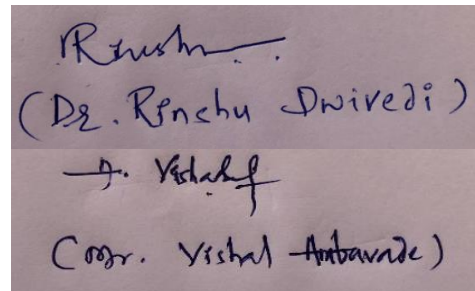 Rinshu
(Dr. Rinshu Dwivedi)
A. Vishal
(Mr. Vishal Ambavade)